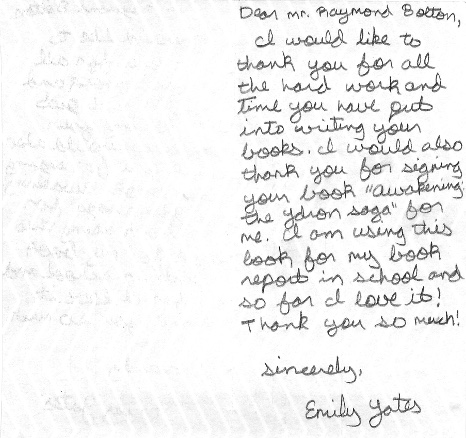 Dear Mr. Raymond Bolton,
I would like to
thank you for all
the hard work and
time you have put
into writing your
books. I would also
thank you for signing
your book "awakening:
the ydron saga" for
me. I am using this
book for my book
report in school and
so far I love it!
Thank you so much!
sincerely,
Emily Yates